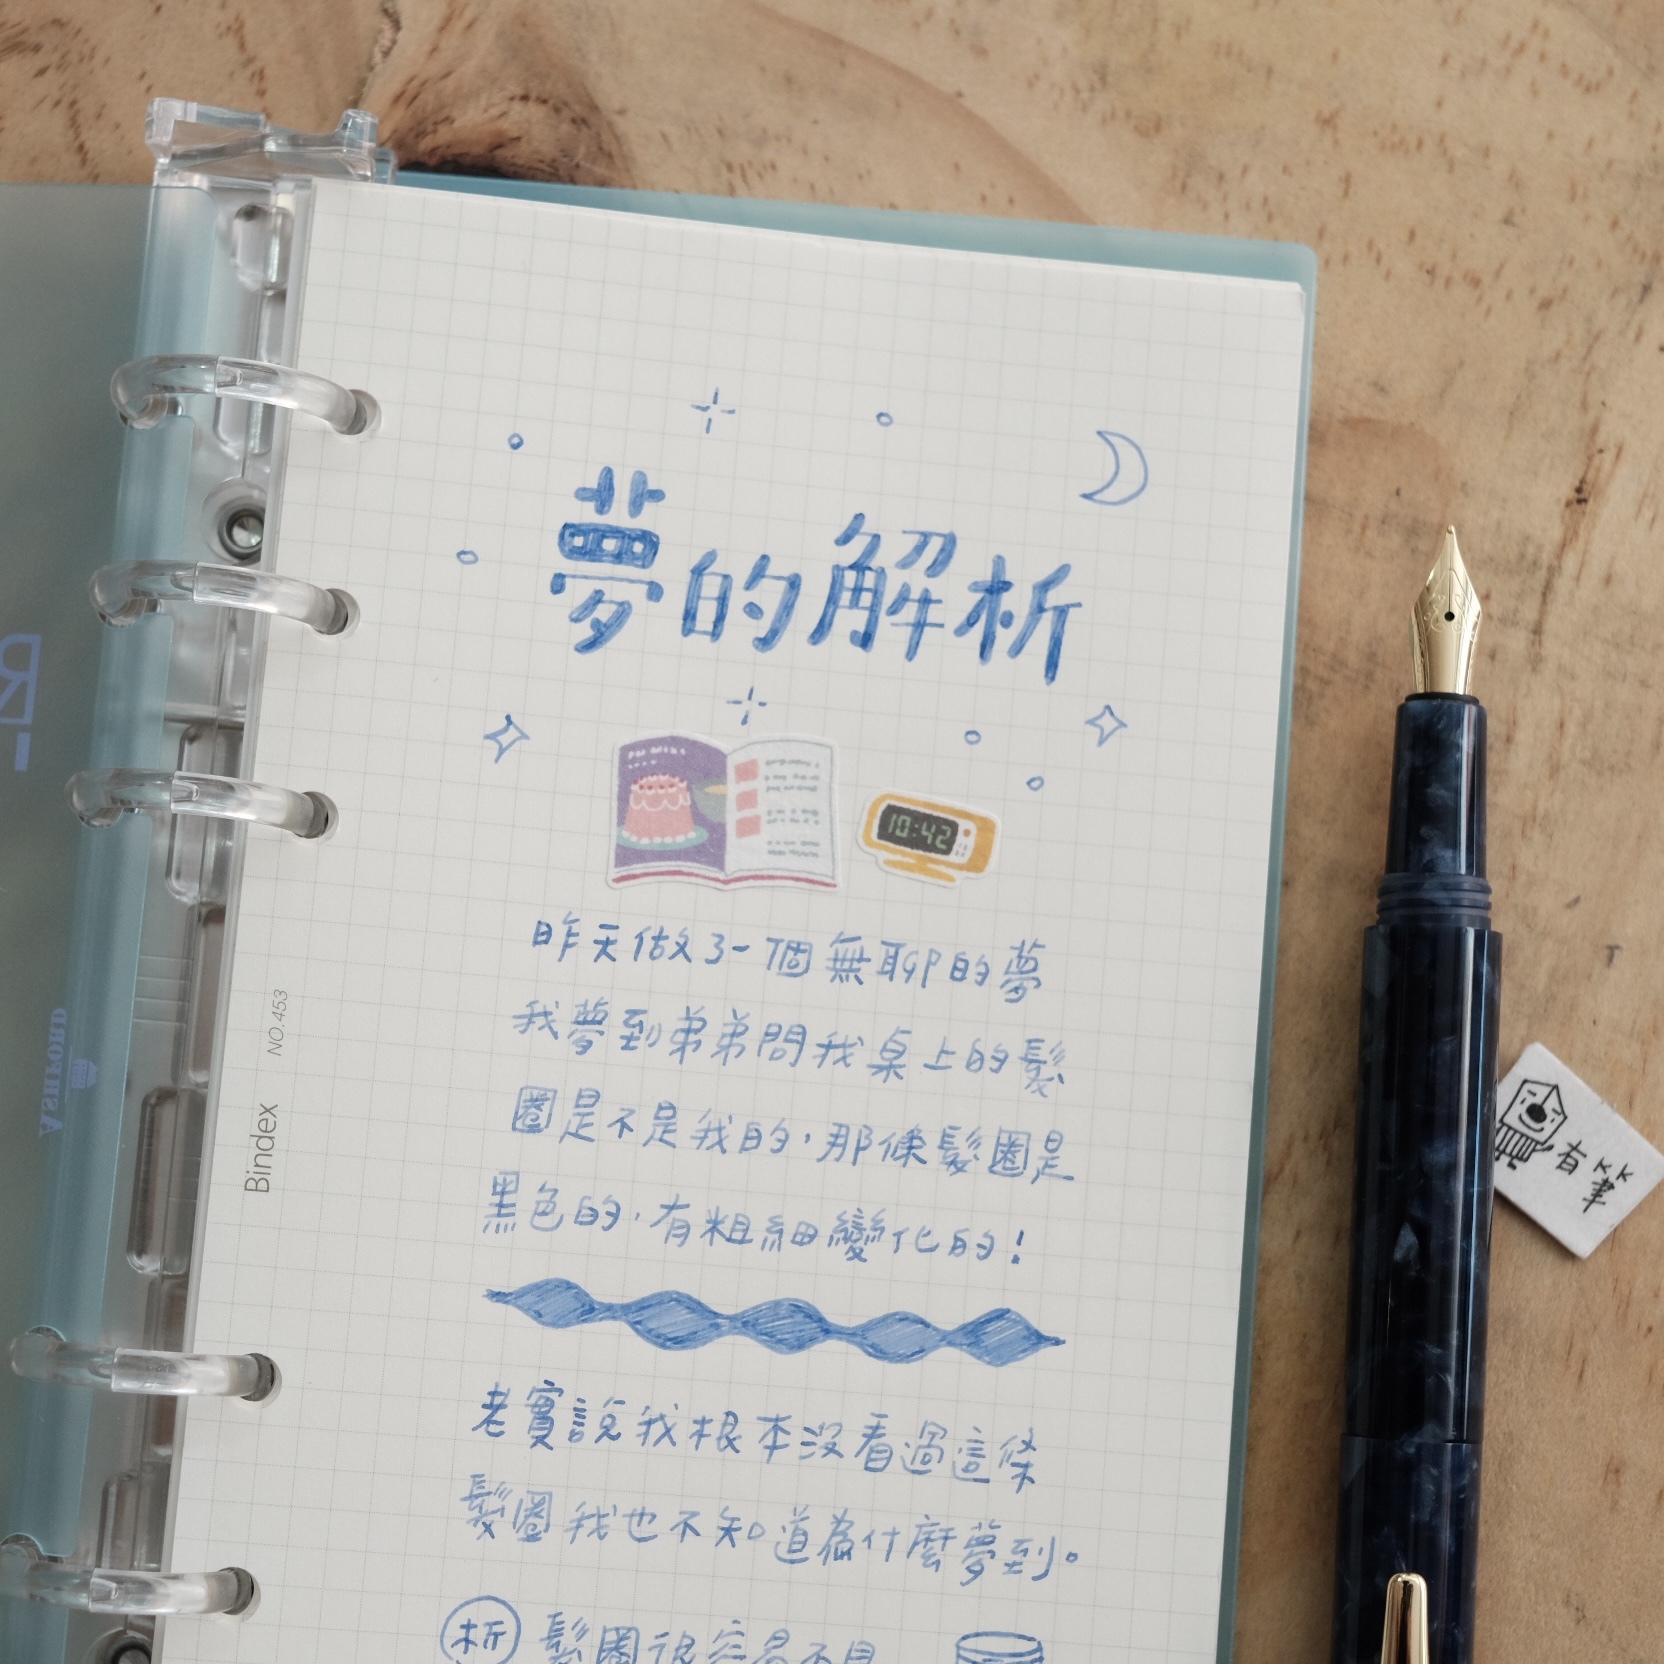 夢的解析
10:42
昨天做了一個無聊的夢
我夢到弟弟問我桌上的髮
圈是不是我的,那條髮圈是
黑色的,有粗細變化的!
老實說我根本沒看過這條
髮圈我也不知道為什麼夢到。
析 髮圈很容易不見
Bindex NO.453
ASHFORD
有筆